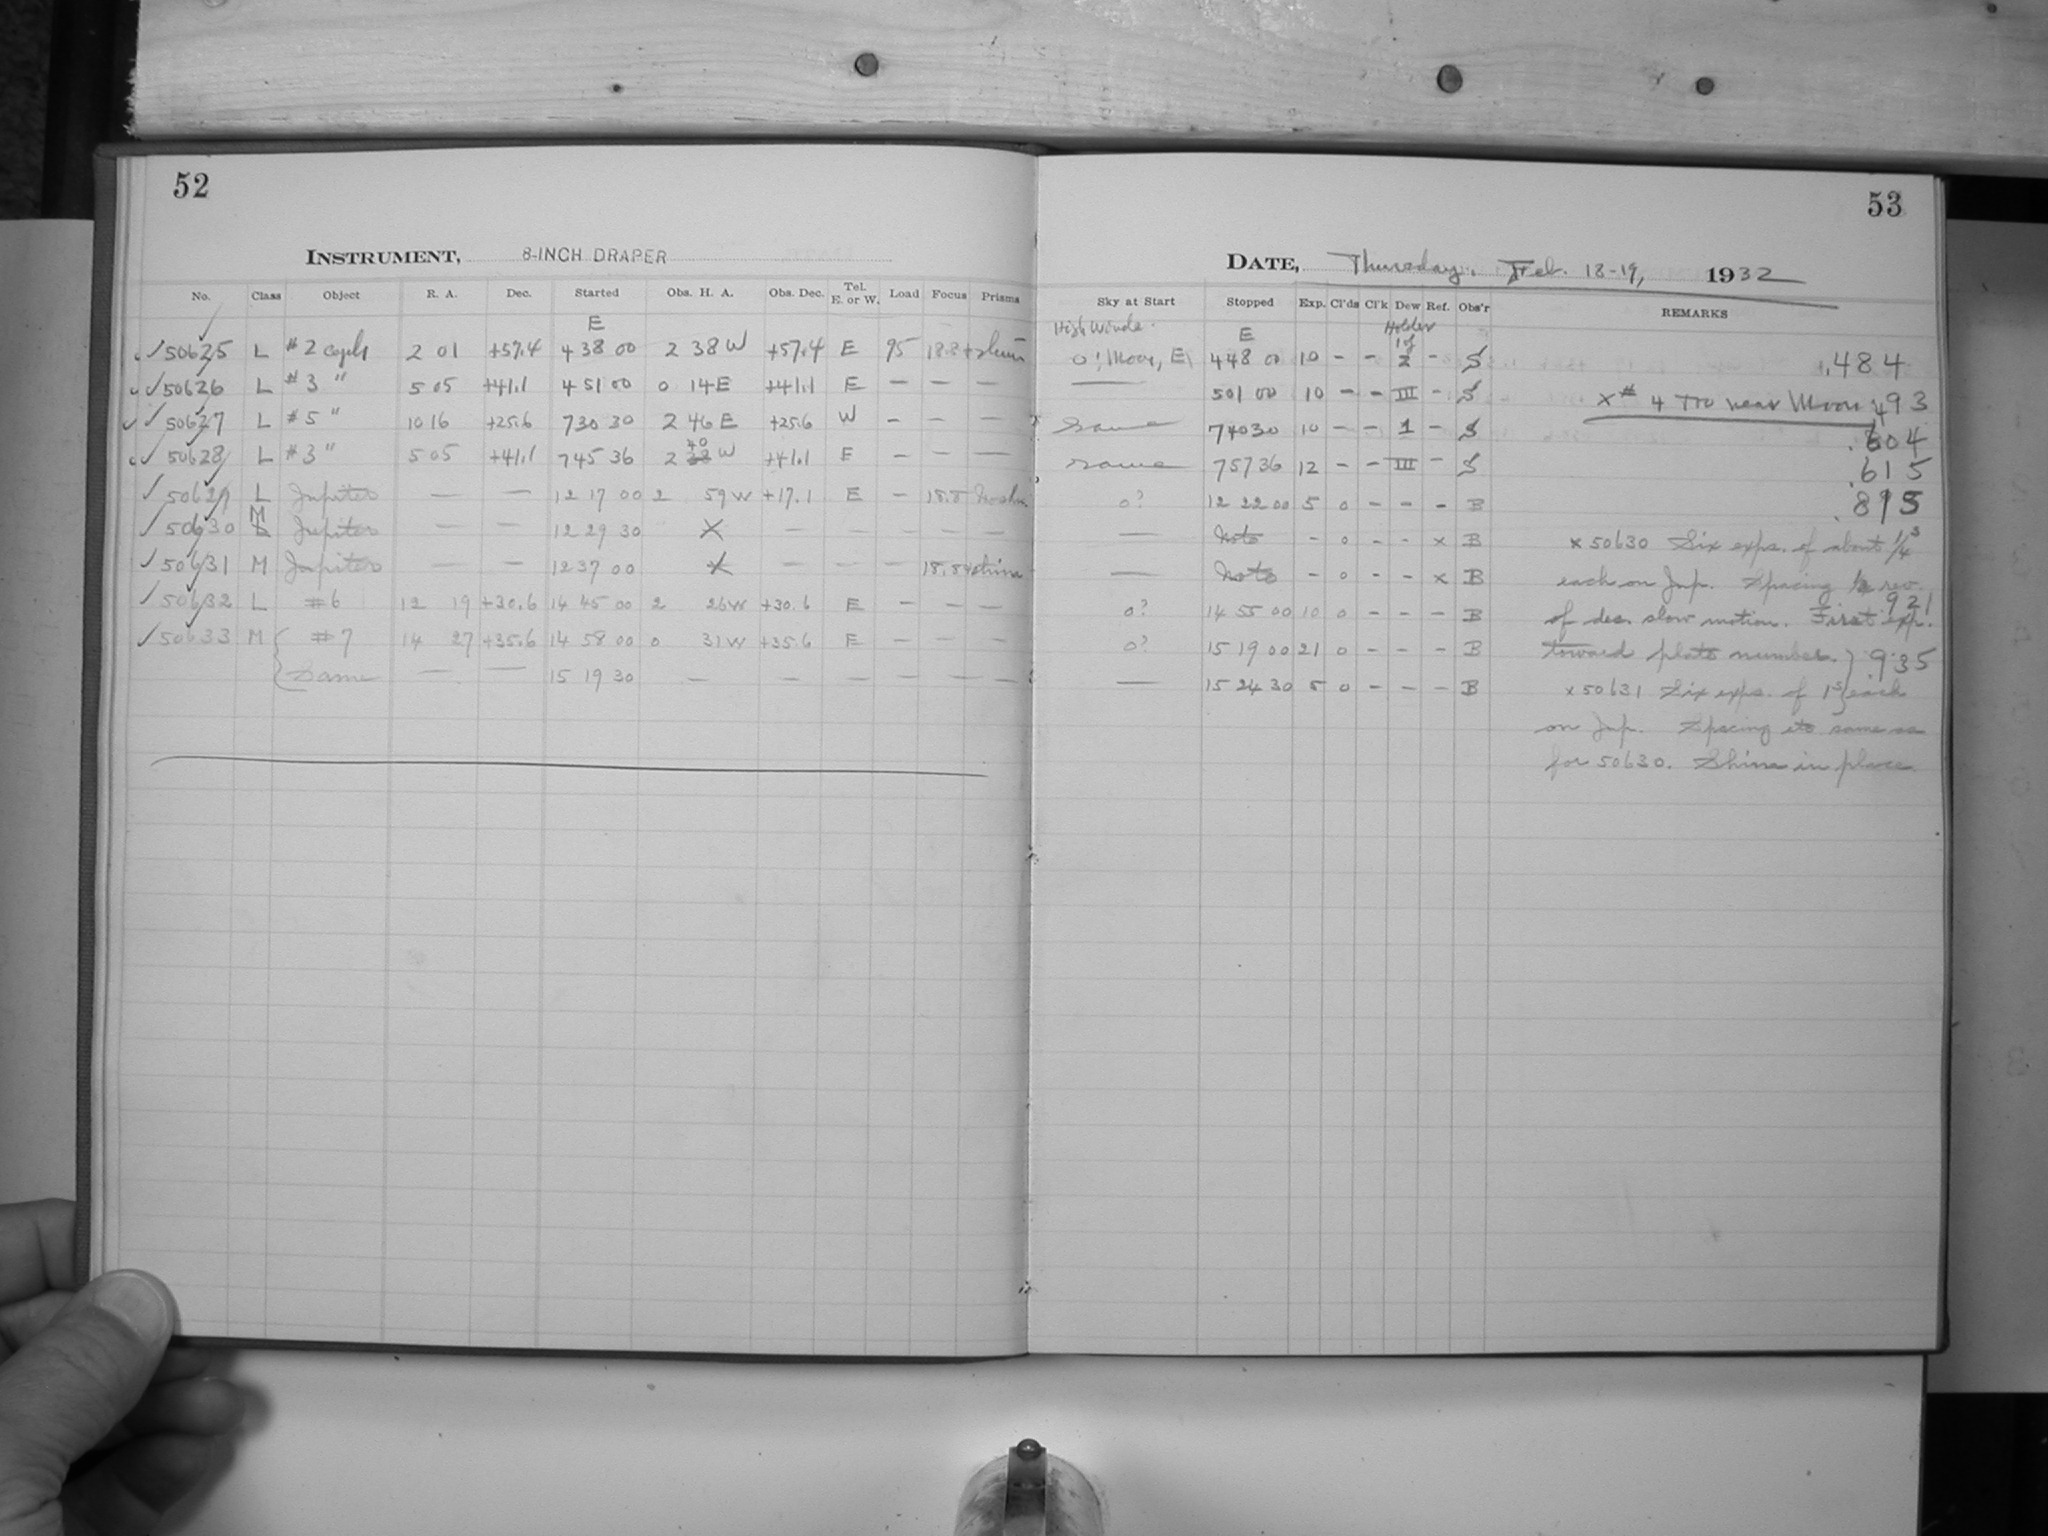 52
INSTRUMENT, 8-INCH DRAPER
No. Class Object R. A. Dec. Started Obs. H. A. Obs. Dec. Tel. E. or W. Load Focus Prisms
E
50625 L #2 2 01 +57.4 4 38 00 2 38 W +57.4 E 95 18.8
50626 L #3 " 5 05 +41.1 4 51 00 0 14 E +41.1 E — — —
50627 L #5 " 10 16 +25.6 7 30 30 2 46 E +25.6 W — — —
50628 L #3 " 5 05 +41.1 7 45 36 2 40 W +41.1 E — — —
50629 L Jupiter — — 12 17 00 2 59 W +17.1 E — 18.8
50630 M Jupiter — — 12 29 30 X — — — — —
50631 M Jupiter — — 12 37 00 X — — — 18.8 + shim
50632 L #6 12 19 +30.6 14 45 00 2 26 W +30.6 E — — —
50633 M { #7 14 27 +35.6 14 58 00 0 31 W +35.6 E — — —
Same — — 15 19 30 — — — — — —
53
DATE, Thursday, Feb. 18-19, 1932
Sky at Start Stopped Exp. Cl'ds Cl'k Dew Ref. Obs'r REMARKS
High Winds. E Holder
0! Moon, E 4 48 00 10 – – 2 – S .484
— 5 01 00 10 – – III – S x # 4 too near Moon .493
Same 7 40 30 10 – – 1 – S .604
same 7 57 36 12 – – III – S .615
0? 12 22 00 5 0 – – – B .895
— Note – 0 – – x B x 50630 Six exps. of about 1/4 s
— Note – 0 – – x B each on Jup. Spacing 1/2 rev.
0? 14 55 00 10 0 – – – B of dec. slow motion. First exp. .921
0? 15 19 00 21 0 – – – B toward plate number. } .935
— 15 24 30 5 0 – – – B x 50631 Six exps. of 1s each
on Jup. Spacing etc same as
for 50630. Shims in place.